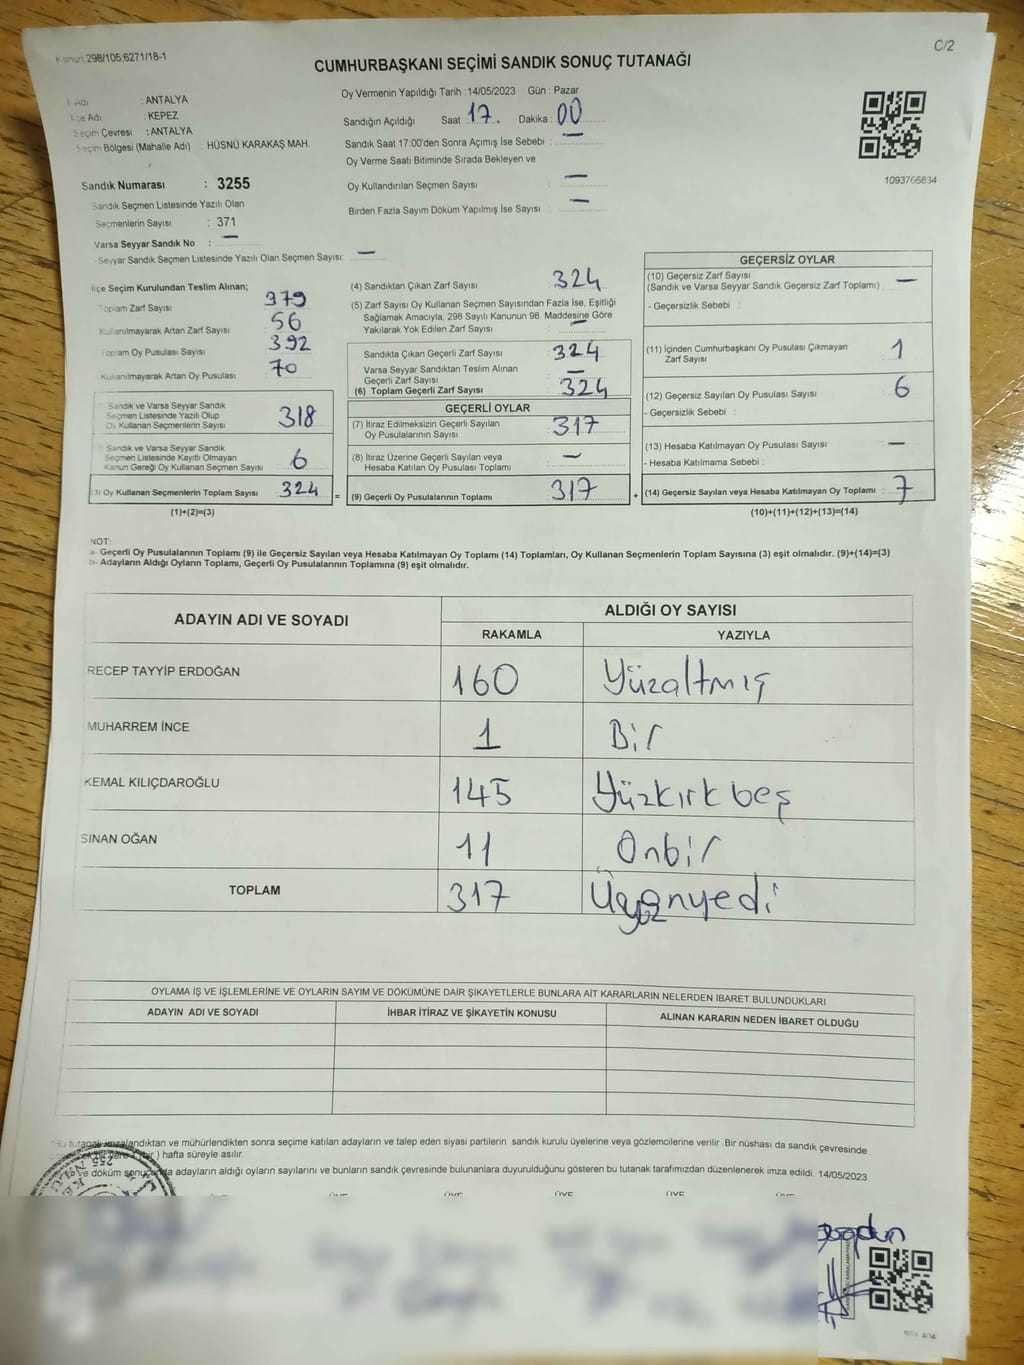 Kanun:298/105;6271/18-1
C/2
CUMHURBAŞKANI SEÇİMİ SANDIK SONUÇ TUTANAĞI
İl Adı : ANTALYA
İlçe Adı : KEPEZ
Seçim Çevresi : ANTALYA
Seçim Bölgesi (Mahalle Adı) . HÜSNÜ KARAKAŞ MAH.
Sandık Numarası : 3255
Sandık Seçmen Listesinde Yazılı Olan
Seçmenlerin Sayısı : 371
Varsa Seyyar Sandık No : —
- Seyyar Sandık Seçmen Listesinde Yazılı Olan Seçmen Sayısı: —
Oy Vermenin Yapıldığı Tarih :14/05/2023 Gün : Pazar
Sandığın Açıldığı Saat 17. Dakika : 00
Sandık Saat 17:00'den Sonra Açımış İse Sebebi : —
Oy Verme Saati Bitiminde Sırada Bekleyen ve
Oy Kullandırılan Seçmen Sayısı : —
Birden Fazla Sayım Döküm Yapılmış İse Sayısı : —
1093766834
İlçe Seçim Kurulundan Teslim Alınan;
Toplam Zarf Sayısı 379
Kullanılmayarak Artan Zarf Sayısı 56
Toplam Oy Pusulası Sayısı 392
Kullanılmayarak Artan Oy Pusulası 70
Sandık ve Varsa Seyyar Sandık
Seçmen Listesinde Yazılı Olup
Oy Kullanan Seçmenlerin Sayısı 318
Sandık ve Varsa Seyyar Sandık
Seçmen Listesinde Kayıtlı Olmayan
Kanun Gereği Oy Kullanan Seçmen Sayısı 6
(3) Oy Kullanan Seçmenlerin Toplam Sayısı 324 =
(1)+(2)=(3)
(4) Sandıktan Çıkan Zarf Sayısı 324
(5) Zarf Sayısı Oy Kullanan Seçmen Sayısından Fazla İse, Eşitliği
Sağlamak Amacıyla, 298 Sayılı Kanunun 98. Maddesine Göre
Yakılarak Yok Edilen Zarf Sayısı : —
Sandıkta Çıkan Geçerli Zarf Sayısı 324
Varsa Seyyar Sandıktan Teslim Alınan
Geçerli Zarf Sayısı —
(6) Toplam Geçerli Zarf Sayısı 324
GEÇERLİ OYLAR
(7) İtiraz Edilmeksizin Geçerli Sayılan
Oy Pusulalarının Sayısı : 317
(8) İtiraz Üzerine Geçerli Sayılan veya
Hesaba Katılan Oy Pusulası Toplamı : —
(9) Geçerli Oy Pusulalarının Toplamı 317 +
GEÇERSİZ OYLAR
(10) Geçersiz Zarf Sayısı
(Sandık ve Varsa Seyyar Sandık Geçersiz Zarf Toplamı) : —
- Geçersizlik Sebebi :
(11) İçinden Cumhurbaşkanı Oy Pusulası Çıkmayan
Zarf Sayısı 1
(12) Geçersiz Sayılan Oy Pusulası Sayısı : 6
- Geçersizlik Sebebi :
(13) Hesaba Katılmayan Oy Pusulası Sayısı : —
- Hesaba Katılmama Sebebi :
(14) Geçersiz Sayılan veya Hesaba Katılmayan Oy Toplamı : 7
(10)+(11)+(12)+(13)=(14)
NOT:
a- Geçerli Oy Pusulalarının Toplamı (9) ile Geçersiz Sayılan veya Hesaba Katılmayan Oy Toplamı (14) Toplamları, Oy Kullanan Seçmenlerin Toplam Sayısına (3) eşit olmalıdır. (9)+(14)=(3)
b- Adayların Aldığı Oyların Toplamı, Geçerli Oy Pusulalarının Toplamına (9) eşit olmalıdır.
ADAYIN ADI VE SOYADI
ALDIĞI OY SAYISI
RAKAMLA YAZIYLA
RECEP TAYYİP ERDOĞAN 160 Yüzaltmış
MUHARREM İNCE 1 Bir
KEMAL KILIÇDAROĞLU 145 Yüzkırkbeş
SİNAN OĞAN 11 Onbir
TOPLAM 317 Üçyüzonyedi
OYLAMA İŞ VE İŞLEMLERİNE VE OYLARIN SAYIM VE DÖKÜMÜNE DAİR ŞİKAYETLERLE BUNLARA AİT KARARLARIN NELERDEN İBARET BULUNDUKLARI
ADAYIN ADI VE SOYADI İHBAR İTİRAZ VE ŞİKAYETİN KONUSU ALINAN KARARIN NEDEN İBARET OLDUĞU
Bu tutanak imzalandıktan ve mühürlendikten sonra seçime katılan adayların ve talep eden siyasi partilerin sandık kurulu üyelerine veya gözlemcilerine verilir .Bir nüshası da sandık çevresinde
hafta süreyle asılır.
ve döküm sonucunda adayların aldığı oyların sayılarını ve bunların sandık çevresinde bulunanlara duyurulduğunu gösteren bu tutanak tarafımızdan düzenlenerek imza edildi. 14/05/2023
ÜYE ÜYE ÜYE ÜYE ÜYE